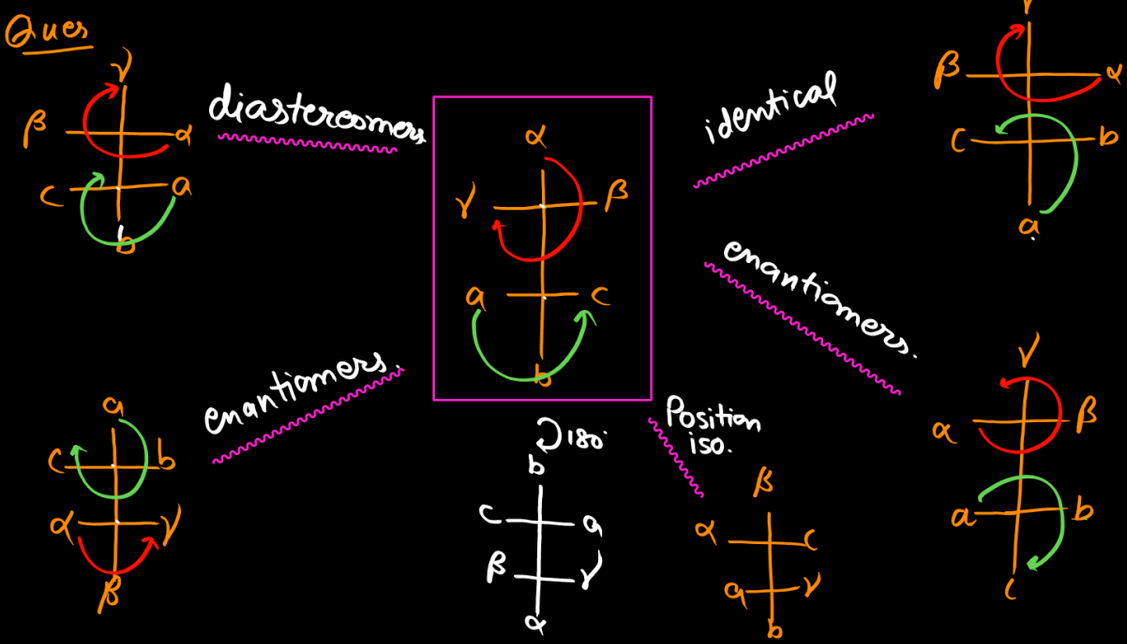 Ques
γ
β α
c a
b
diastereomers
α
γ β
a c
b
identical
γ
β α
c b
a
enantiomers.
γ
α β
a b
c
enantiomers.
a
c b
α γ
β
180°
b
c a
β γ
α
Position
iso.
β
α c
a γ
b